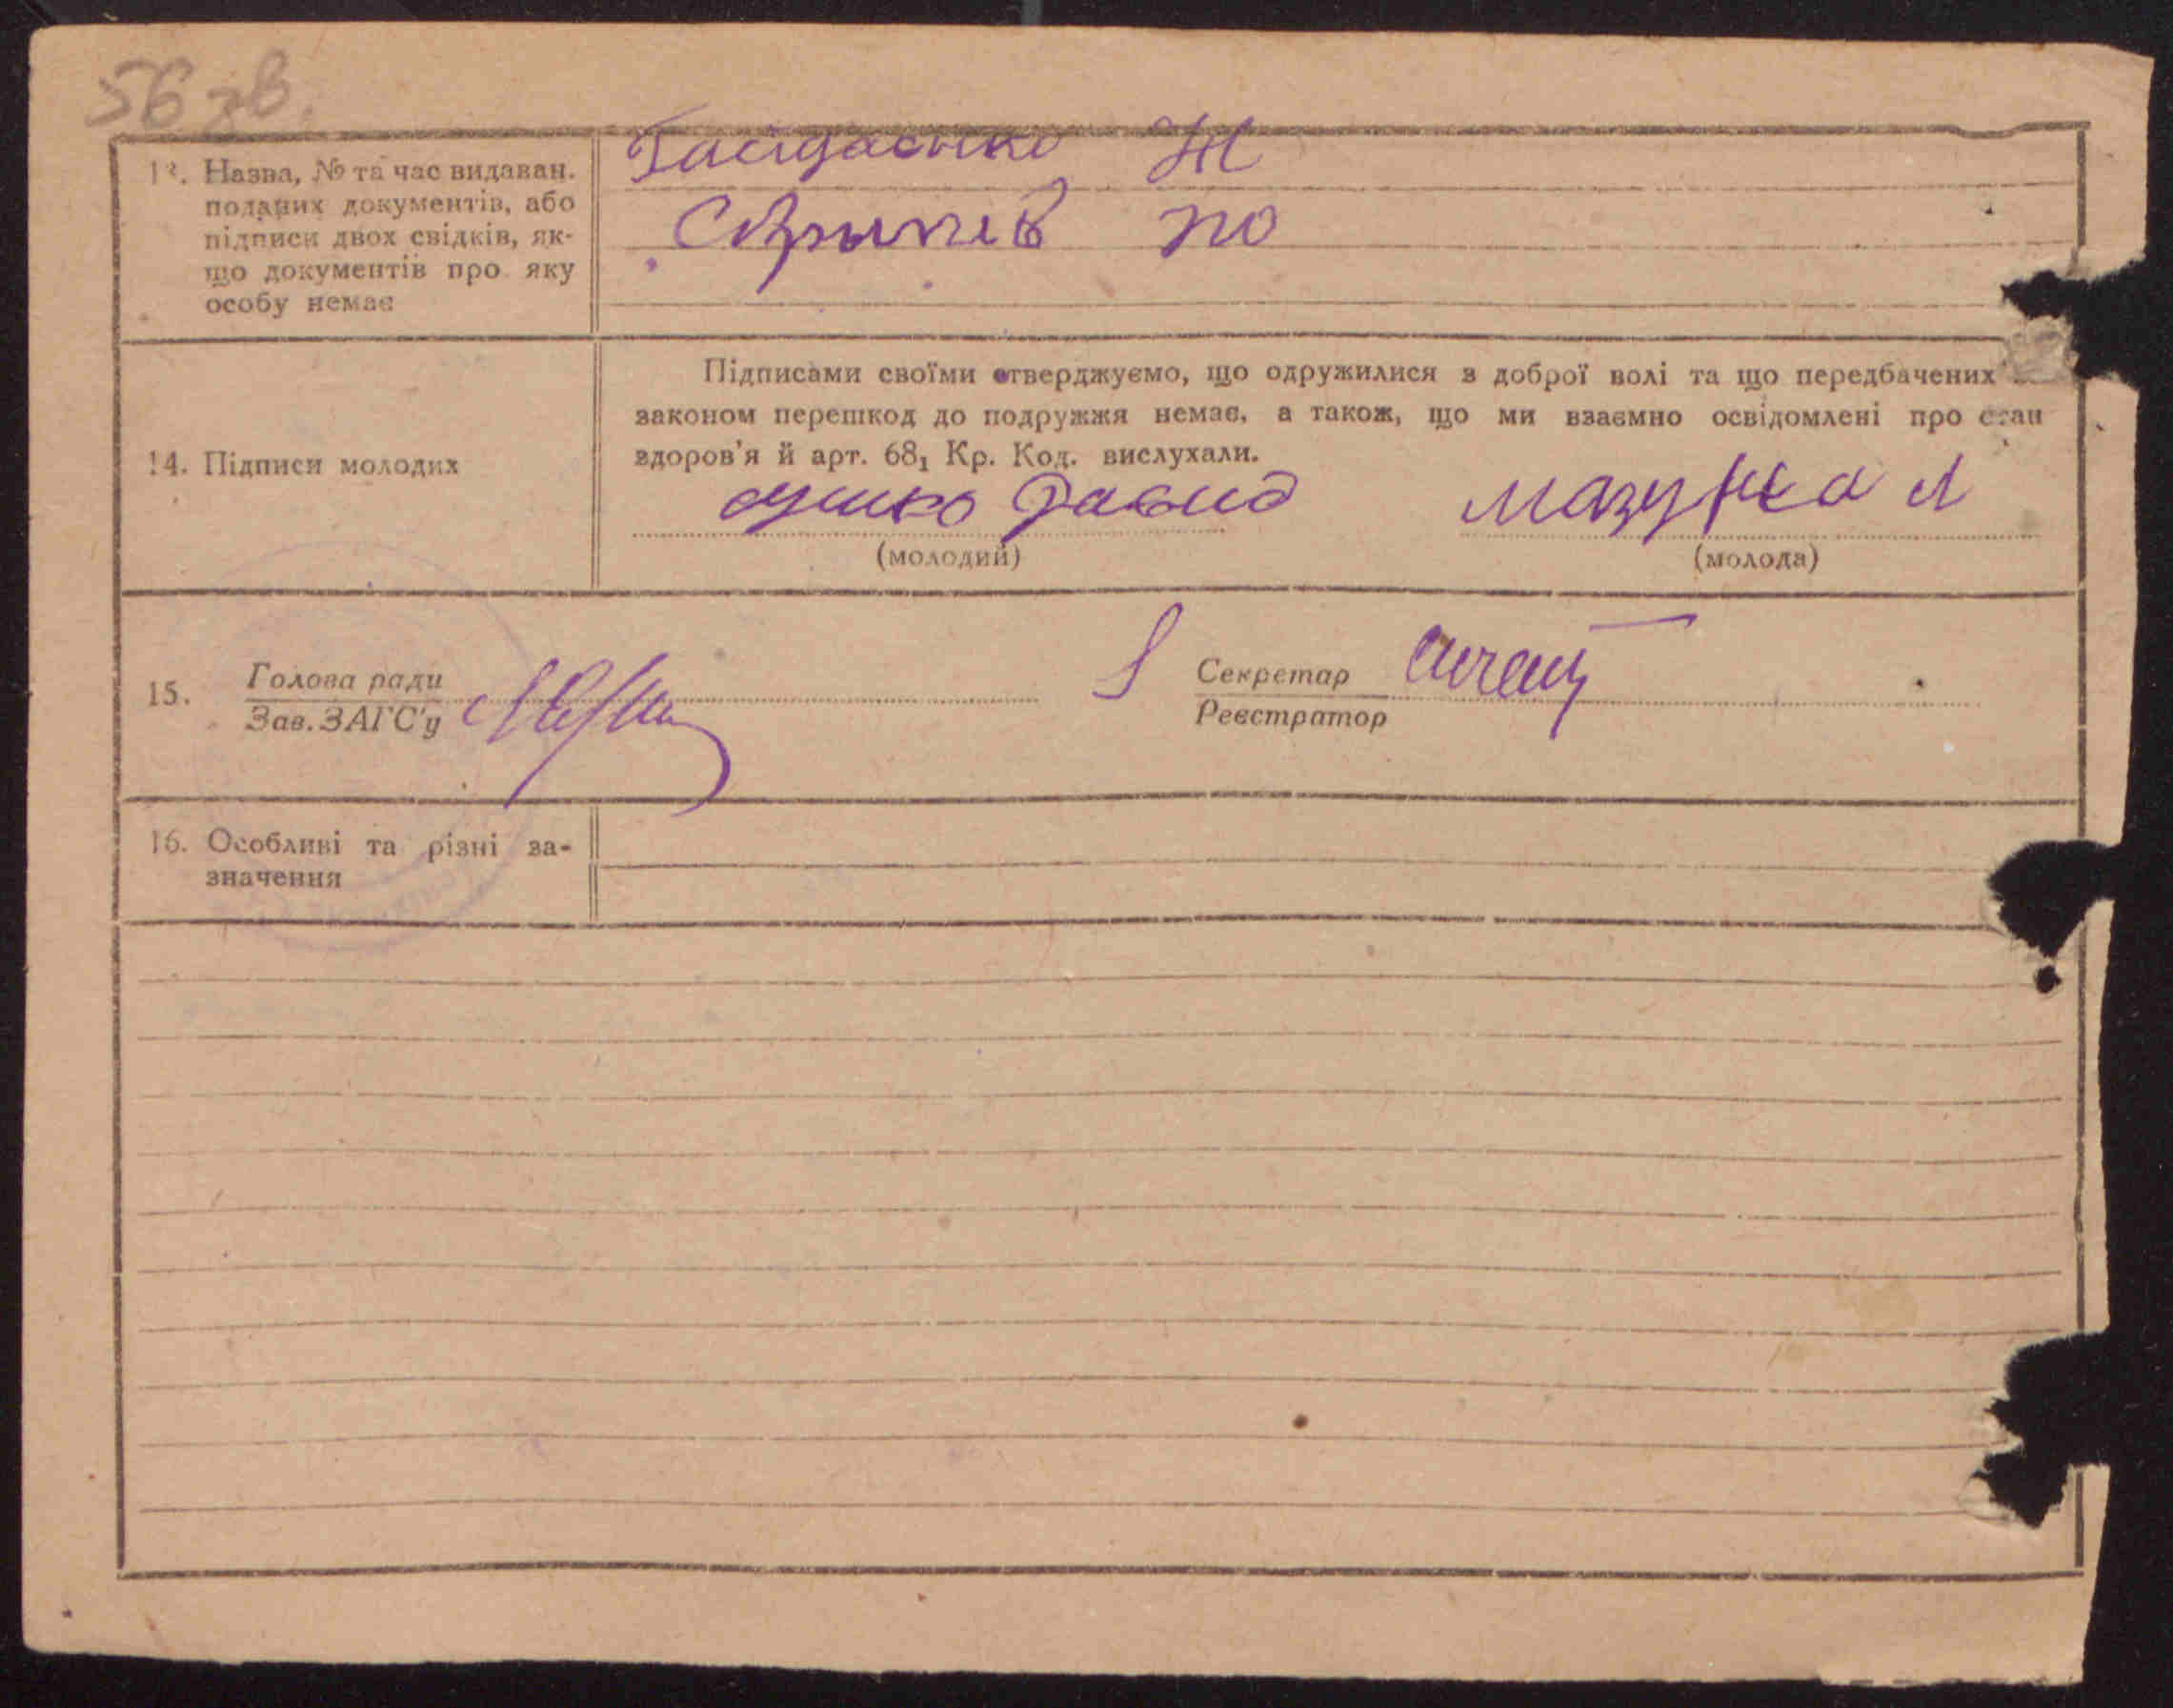 56 зв.
13. Назва, № та час видаван.
поданих документів, або
підписи двох свідків, як-
що документів про яку
особу немає
Ж
Ю
14. Підписи молодих
Підписами своїми стверджуємо, що одружилися з доброї волі та що передбачених
законом перешкод до подружжя немає, а також, що ми взаємно освідомлені про стан
здоров'я й арт. 68₁ Кр. Код. вислухали.
Давид
Мазурка Л
(молодий)
(молода)
15. Голова ради
Зав. ЗАГС'у
Секретар
Реєстратор
16. Особливі та різні за-
значення